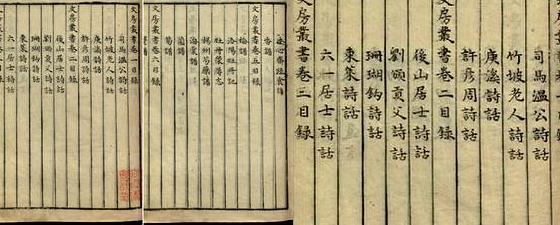 文房叢書卷一目錄
司馬溫公詩話
竹坡老人詩話
庚溪詩話
許彥周詩話
文房叢書卷二目錄
後山居士詩話
劉頒貢父詩話
珊瑚鈎詩話
東萊詩話
六一居士詩話
本心齋疏食譜
文房叢書卷五目錄
洛陽牡丹記
牡丹榮辱志
揚州芍藥譜
海棠譜
筍譜
文房叢書卷六目錄
司馬溫公詩話
竹坡老人詩話
庚溪詩話
許彥周詩話
文房叢書卷二目錄
後山居士詩話
劉頒貢父詩話
珊瑚鈎詩話
東萊詩話
六一居士詩話
文房叢書卷三目錄